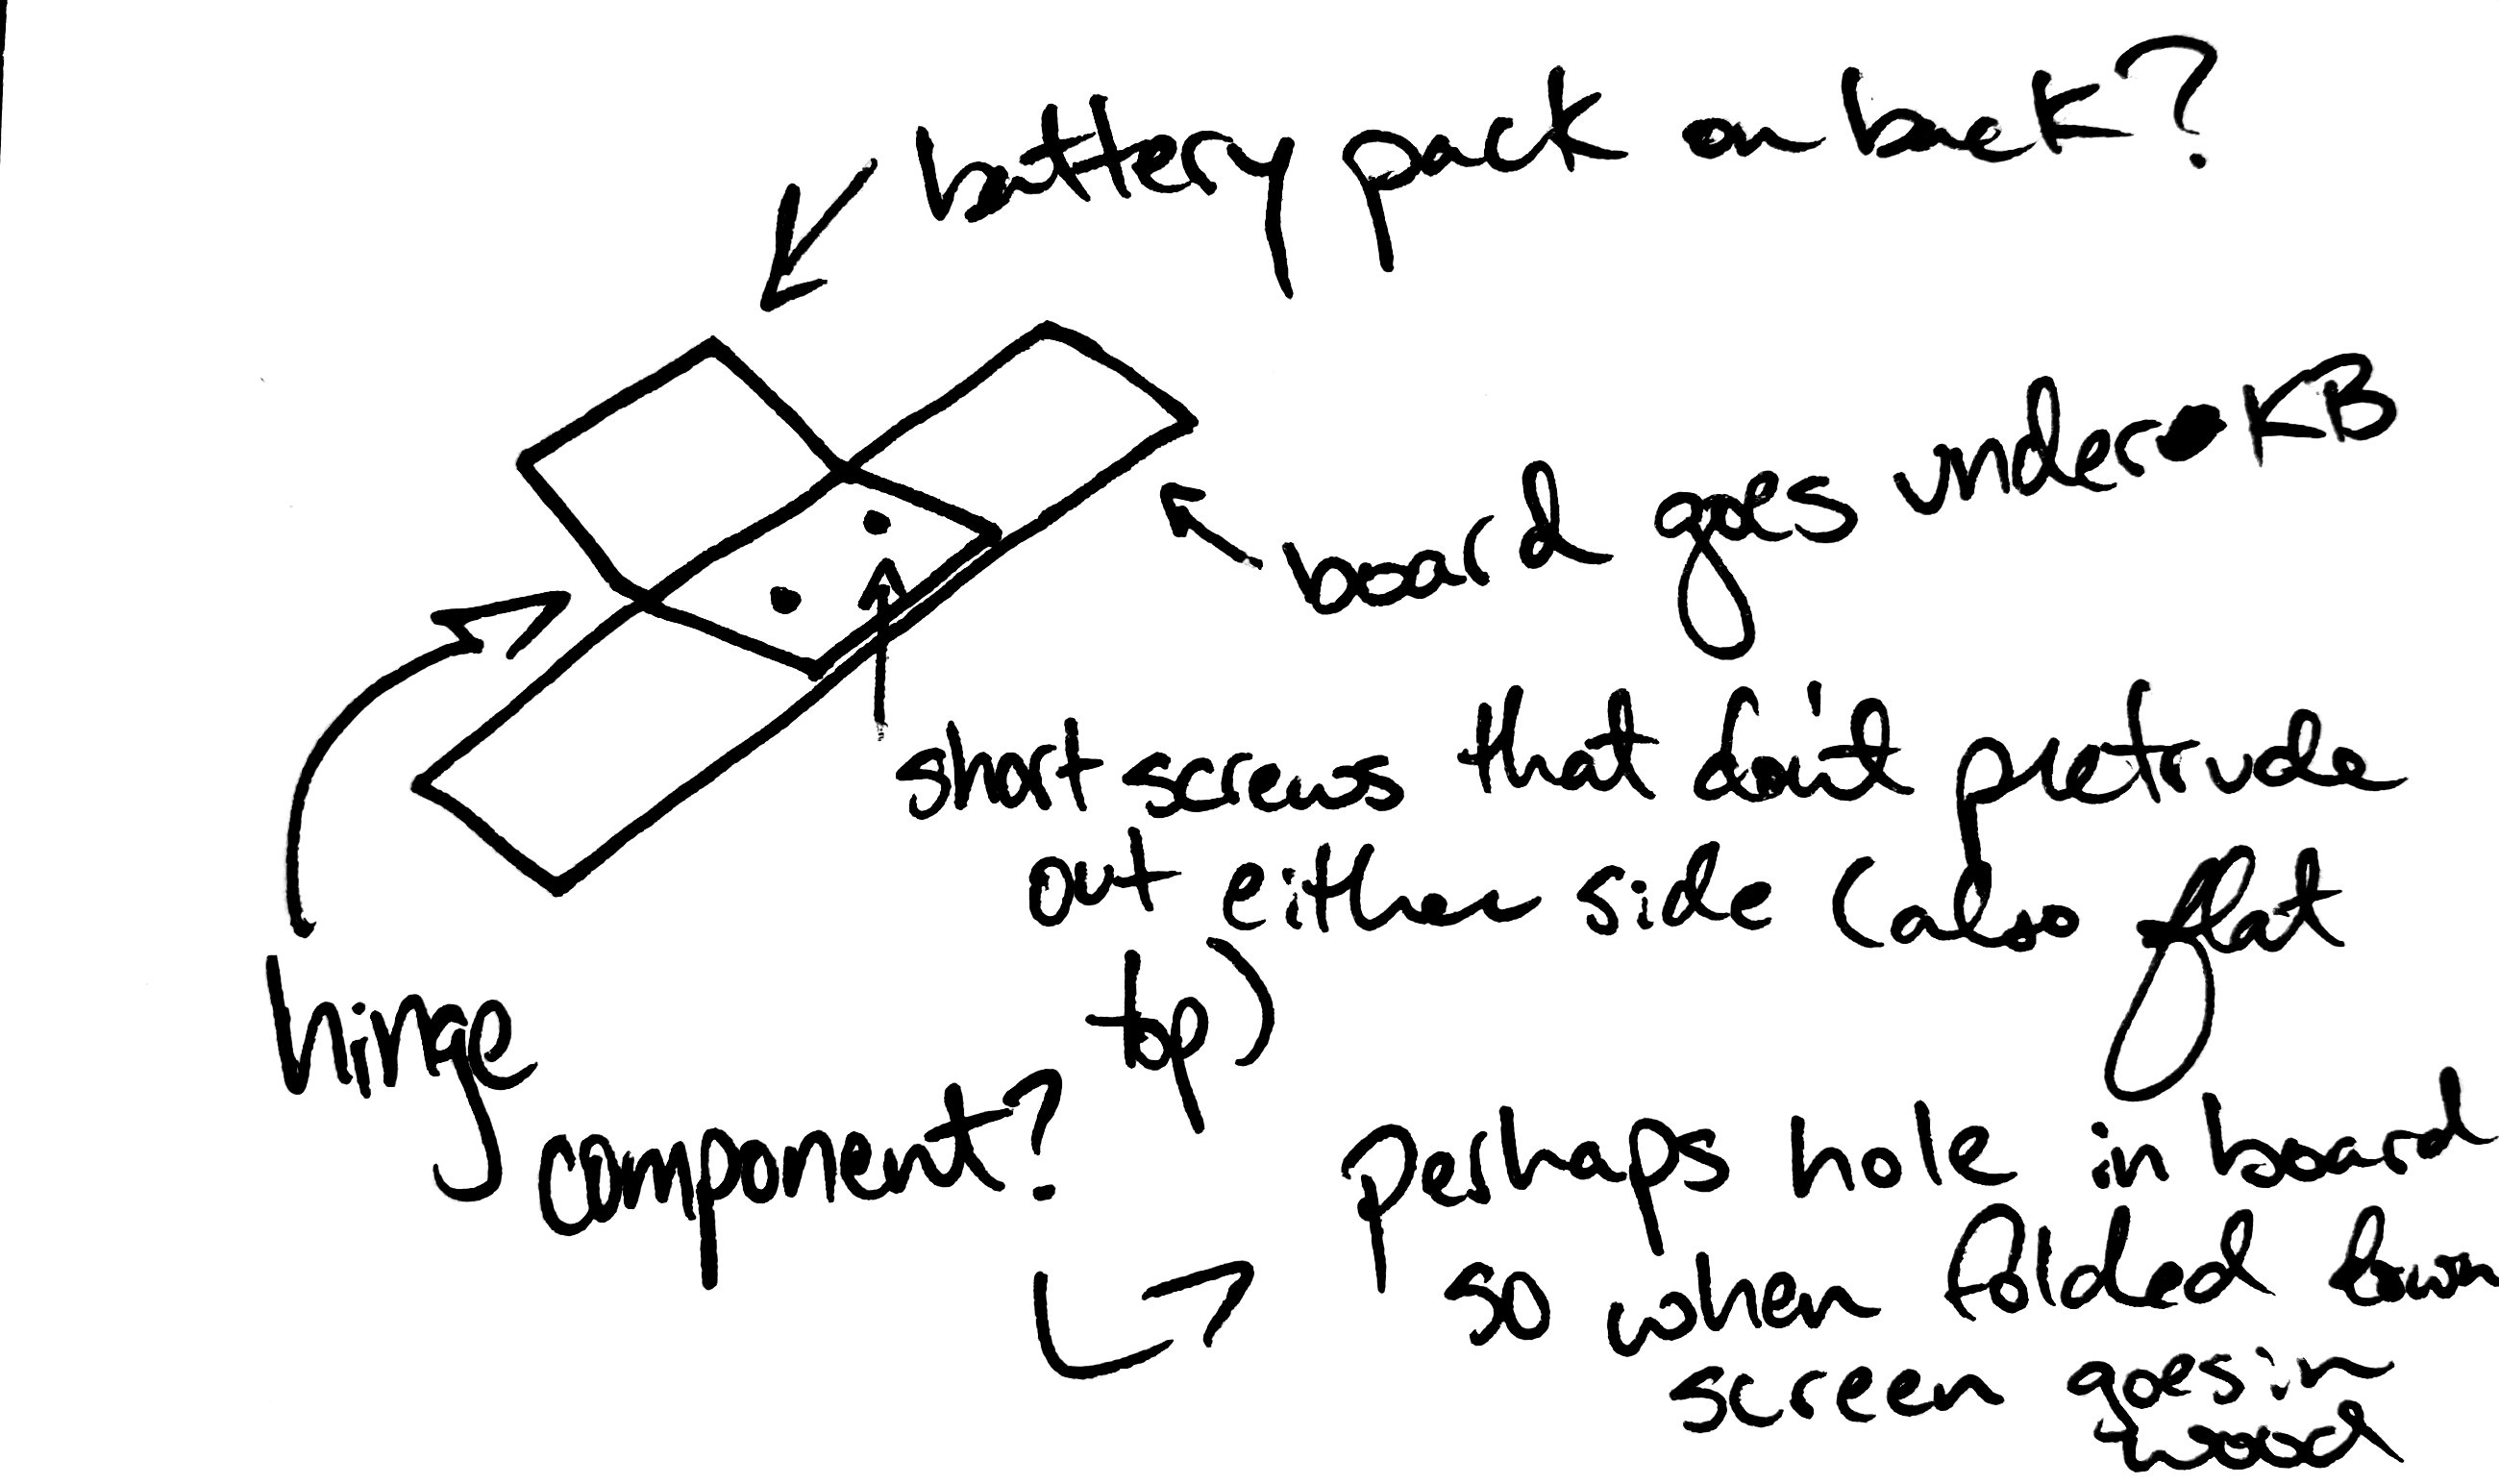 battery pack on back?
board goes under KB
short screws that don't pretrude
out either side (also flat
top)
hinge
component?
perhaps hole in board
so when folded down
screen goes in
wood